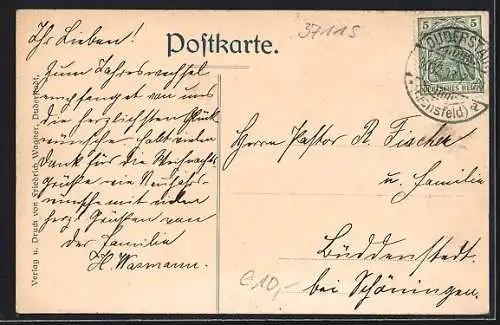 Ihr Lieben!
Zum Jahreswechsel
empfanget von uns
die herzlichsten Glück
wünsche. Habt vielen
Dank für die Weihnachts
grüße wie Neujahrs
wünsche mit vielen
herzl. Grüßen von
der Familie
H. Wasmann.
Postkarte.
37115
5 5
DEUTSCHES REICH
DUDERSTADT
(Eichsfeld) a
Herrn Pastor R. Fischer
u. Familie
Büddenstedt.
bei Schöningen.
€ 10,-
Verlag u. Druck von Friedrich Wagner, Duderstadt.